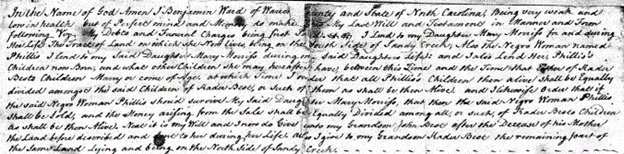 In the Name of God Amen I Benjamin Ward of Warren County and State of North Carolina, Being very weak and
low in health but of Perfect mind and Memory do make my Last Will and Testament in Manner and Form
following Viz. My Debts and Funeral Charges being first I Lend to my Daughter Mary Morriss for and during
Her Life The Tract of Land on which She Now Lives, lying on the South Side of Sandy Creek, Also the Negro Woman named
Phillis I Lend to my Said Daughter Mary Morriss during my Said Daughters Life; and Said Phillis's
Children now Born, and what other Children She may have between this time and the Time that Either of Kader
Bests Children Marry or come of Age, at which Time I order that all Phillis's Children then alive shall be Equally
divided amongst the said Children of Kader Best, or Such of them as shall be then Alive, and Likewise Order that if
the said Negro Woman Phillis should survive My Said Daughter Mary Morriss, that then the said Negro Woman Phillis
Shall be Sold, and the Money arising from the Sale shall be Equally Divided among all, or such, of Kader Bests Children
as shall be then Alive. Next it is my Will and I now do Give unto my Grandson John Best after the Decease of his Mother
the Land before described and Lent to her during her Life, also I give to my Grandson Kader Best the remaining part of
the Same Land Lying and being on the North Side of Sandy Creek